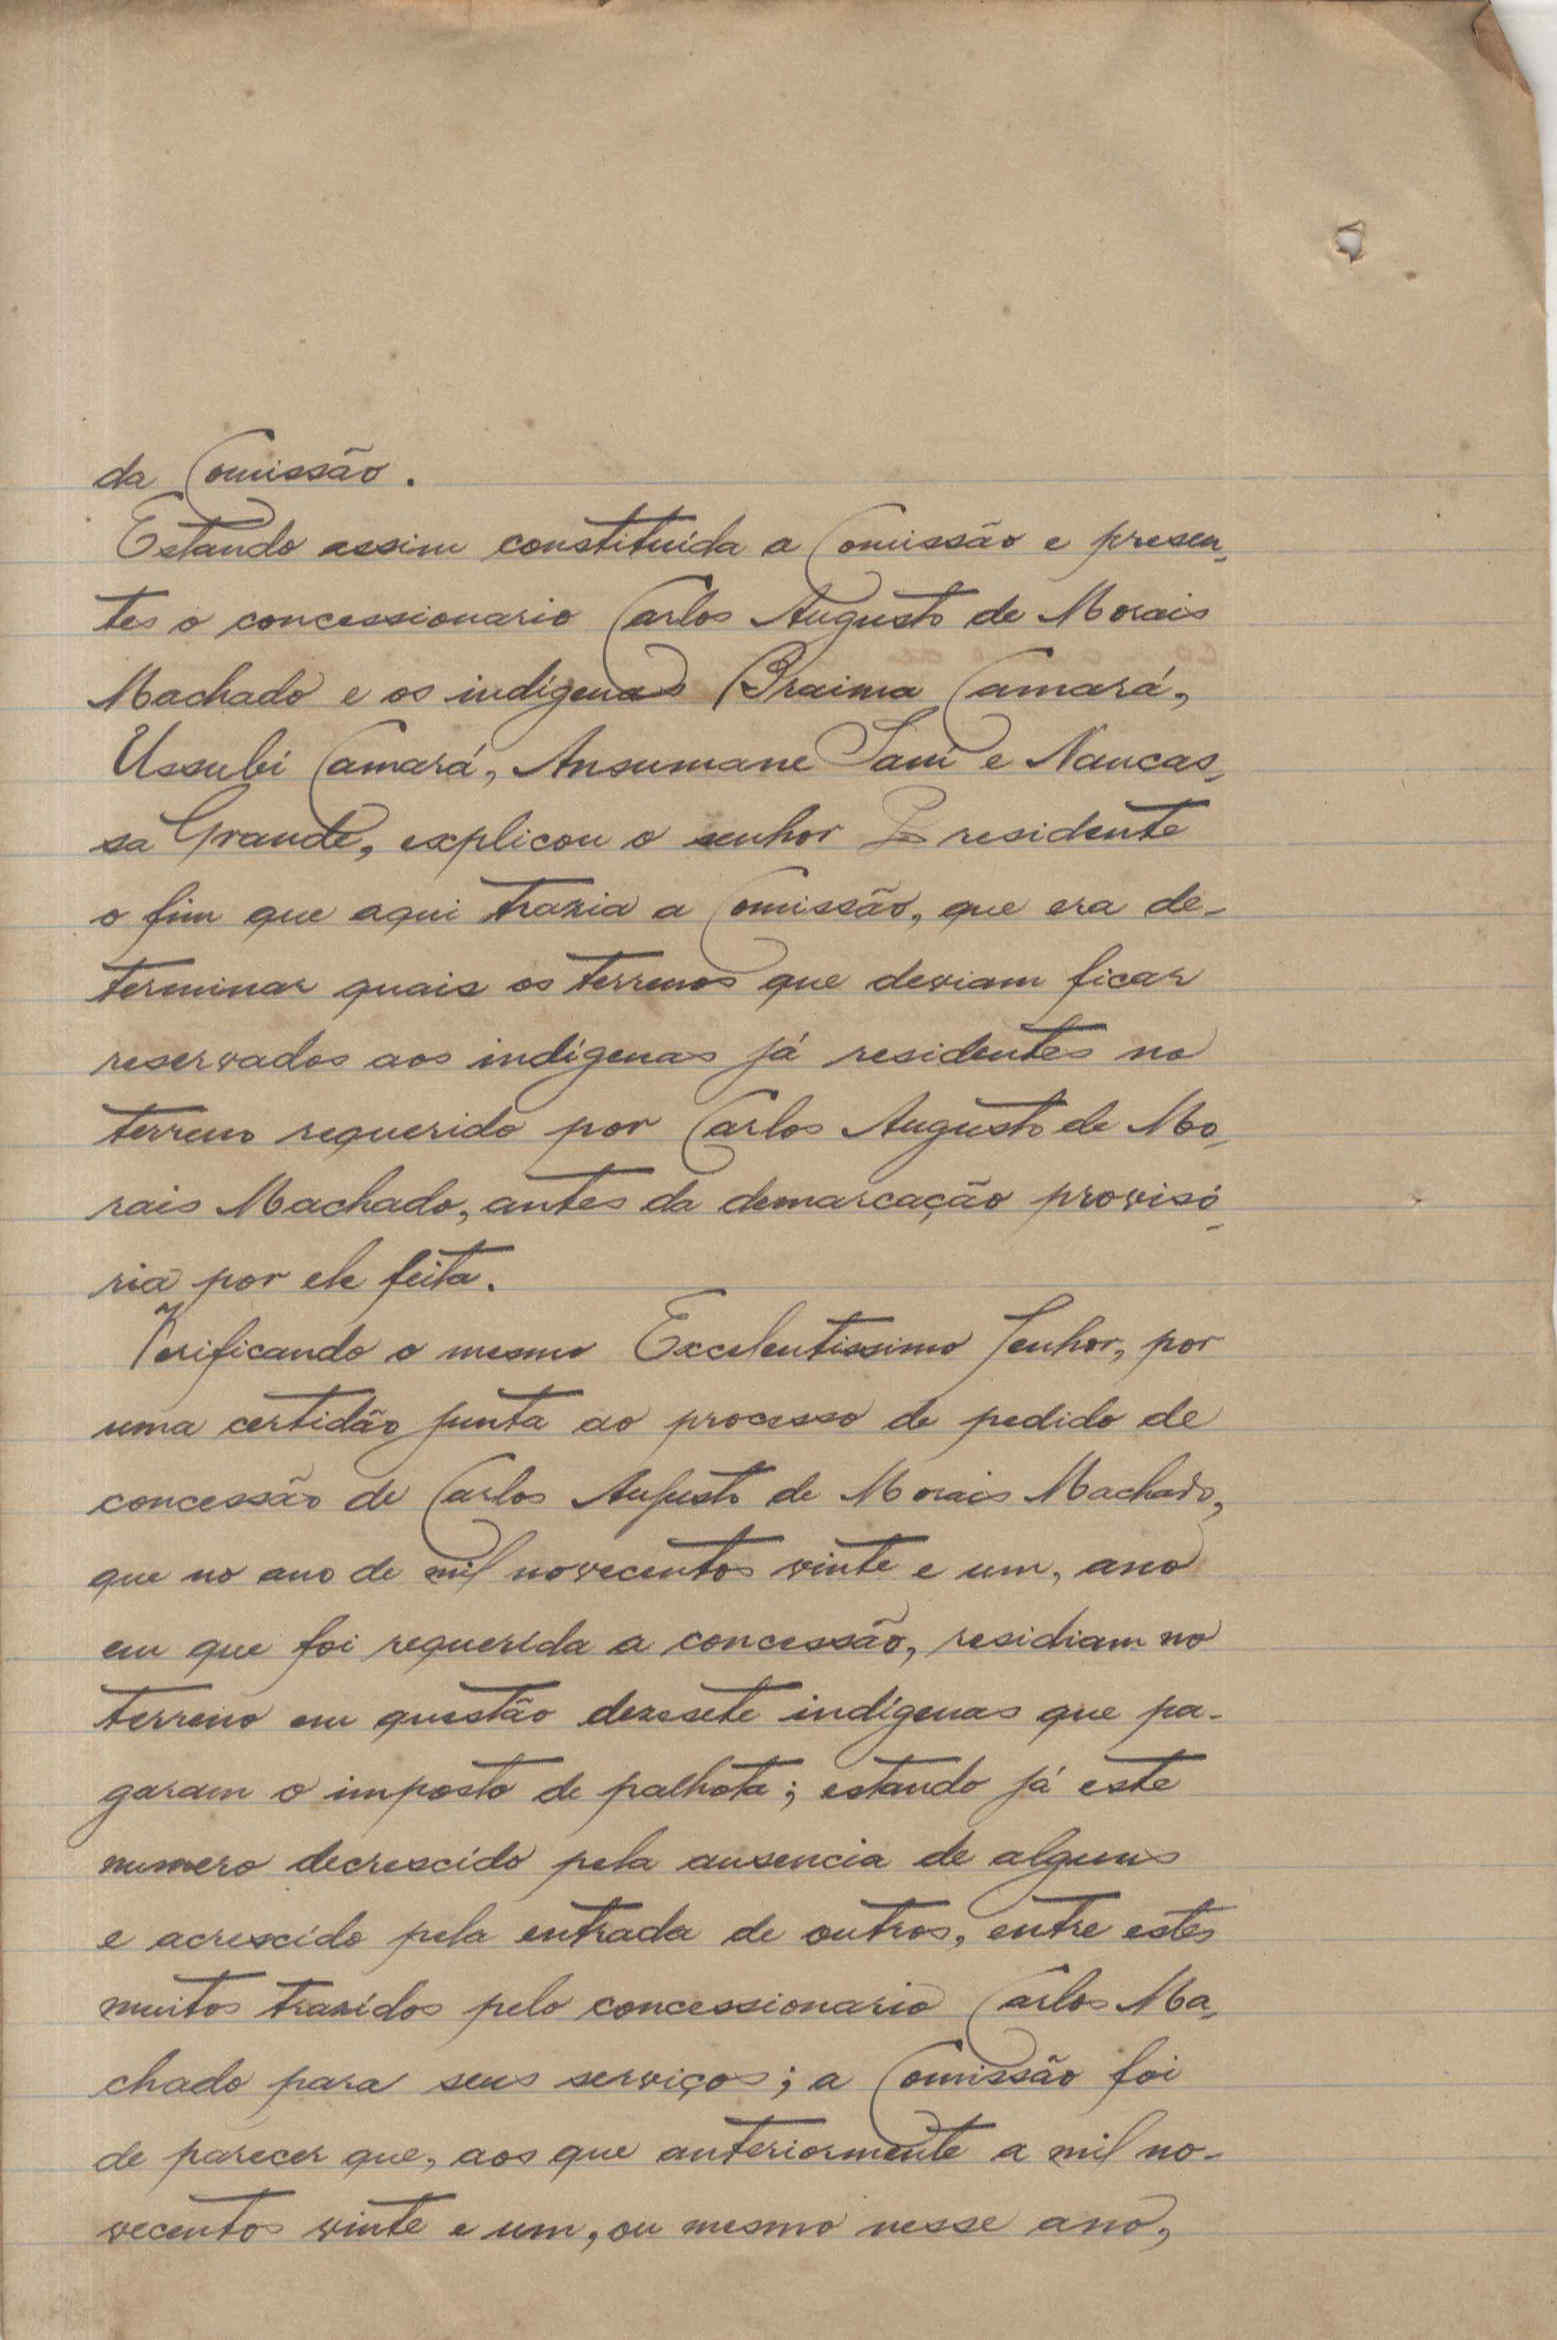 da Comissão.
Estando assim constituída a Comissão e presen-
tes o concessionario Carlos Augusto de Morais
Machado e os indígenas Braima Camará,
Ussubi Camará, Ansumane Sani e Nancas-
sa Grande, explicou o senhor Presidente
o fim que aqui trazia a Comissão, que era de-
terminar quais os terrenos que deviam ficar
reservados aos indígenas já residentes no
terreno requerido por Carlos Augusto de Mo-
rais Machado, antes da demarcação provisó-
ria por ele feita.
Verificando o mesmo Excelentissimo Senhor, por
uma certidão junta ao processo de pedido de
concessão de Carlos Augusto de Morais Machado,
que no ano de mil novecentos vinte e um, ano
em que foi requerída a concessão, residiam no
terreno em questão dezesete indígenas que pa-
garam o imposto de palhota; estando já este
numero decrescído pela ausencia de alguns
e acrescído pela entrada de outros, entre estes
muitos trazídos pelo concessionario Carlos Ma-
chado para seus serviços; a Comissão foi
de parecer que, aos que anteriormente a mil no-
vecentos vinte e um, ou mesmo nesse ano,